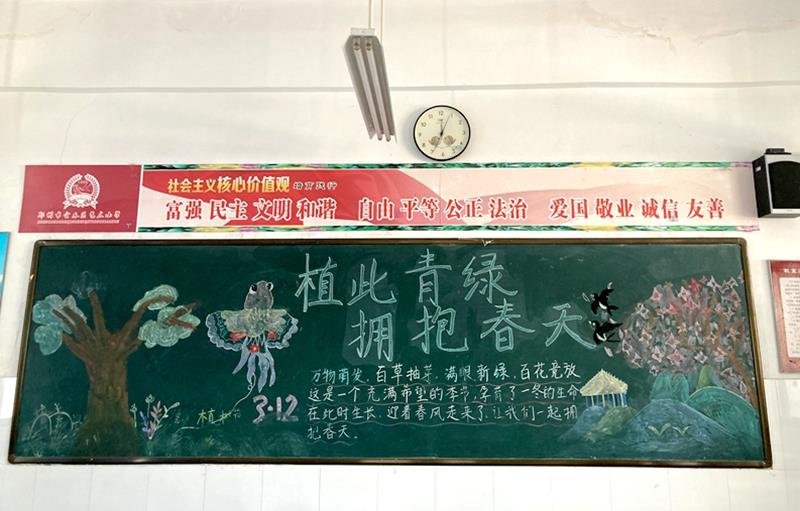 社会主义核心价值观 培育践行
富强 民主 文明 和谐 自由 平等 公正 法治 爱国 敬业 诚信 友善
植此青绿
拥抱春天
万物萌发，百草抽芽，满眼新绿，百花竞放
这是一个充满希望的季节，孕育了一冬的生命
在此时生长，迎着春风走来了，让我们一起拥
抱春天。
植树节
3.12